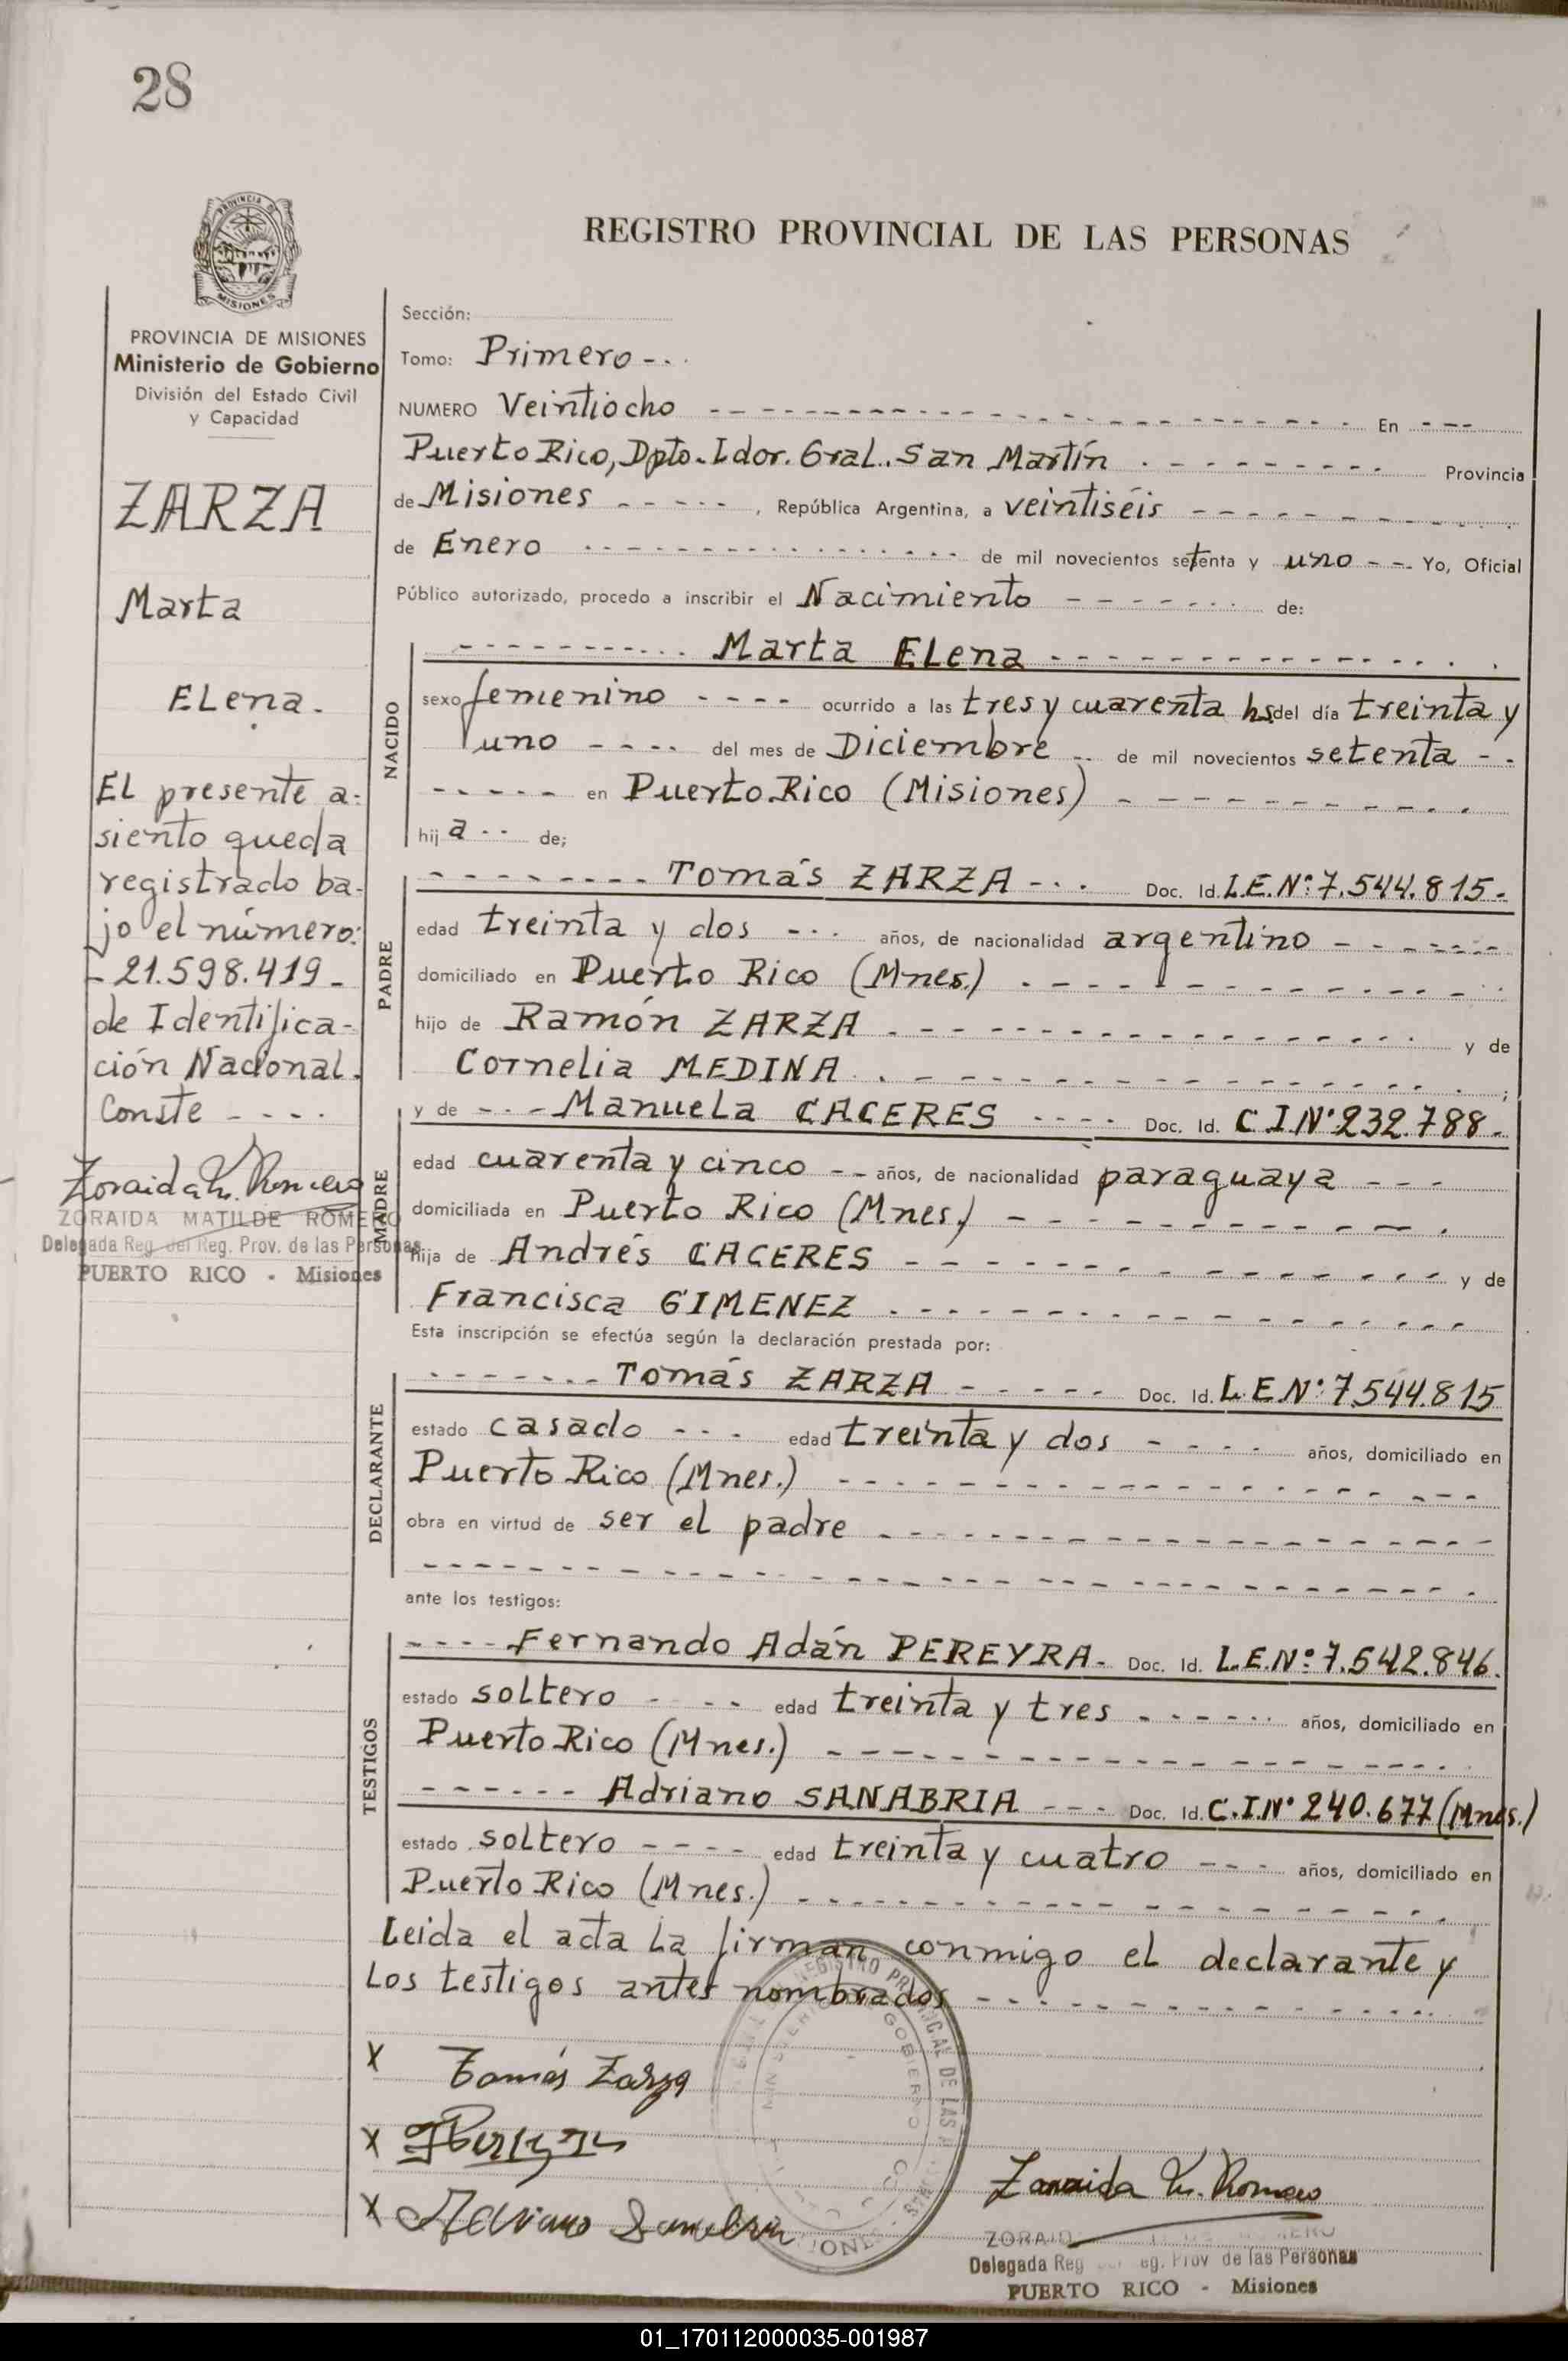 28
PROVINCIA DE
MISIONES
PROVINCIA DE MISIONES
Ministerio de Gobierno
División del Estado Civil
y Capacidad
ZARZA
Marta
ELena.
El presente a-
siento queda
registrado ba-
jo el número:
- 21.598.419 -
de Identifica-
ción Nacional.
Conste - - - .
Zoraida M. Romero
ZORAIDA MATILDE ROMERO
Delegada Reg. del Reg. Prov. de las Personas
PUERTO RICO - Misiones
REGISTRO PROVINCIAL DE LAS PERSONAS
Sección:
Tomo: Primero - . .
NUMERO Veintiocho - - - En - - -
Puerto Rico, Dpto. Ldor. Gral. San Martín - - - Provincia
de Misiones - - - , República Argentina, a veintiséis - - -
de Enero - - - de mil novecientos setenta y uno - - Yo, Oficial
Público autorizado, procedo a inscribir el Nacimiento - - - de:
NACIDO
- - - Marta ELena - - -
sexo femenino - - - - ocurrido a las tres y cuarenta hs del día treinta y
uno - - - - del mes de Diciembre - - de mil novecientos setenta - -
- - - - - en Puerto Rico (Misiones) - - -
hija - - de;
PADRE
- - - Tomás ZARZA - . . Doc. Id. L.E.Nº: 7.544.815-
edad treinta y dos - - - años, de nacionalidad argentino - - -
domiciliado en Puerto Rico (Mnes.) - - -
hijo de Ramón ZARZA - - - y de
Cornelia MEDINA - - - ;
MADRE
y de - - - Manuela CACERES - - - - Doc. Id. C.I.Nº 232.788-
edad cuarenta y cinco - - años, de nacionalidad paraguaya - - -
domiciliada en Puerto Rico (Mnes.) - - -
hija de Andrés CACERES - - - y de
Francisca GIMENEZ - - -
Esta inscripción se efectúa según la declaración prestada por:
DECLARANTE
- - - Tomás ZARZA - - - Doc. Id. L.E.Nº: 7.544.815
estado casado - - - edad treinta y dos - - - - años, domiciliado en
Puerto Rico (Mnes.) - - -
obra en virtud de ser el padre - - -
ante los testigos:
TESTIGOS
- - - - Fernando Adán PEREYRA- Doc. Id. L.E.Nº: 7.542.846.
estado soltero - - - - edad treinta y tres - - - años, domiciliado en
Puerto Rico (Mnes.) - - -
- - - Adriano SANABRIA - - - Doc. Id. C.I.Nº 240.677 (Mnes.)
estado soltero - - - - edad treinta y cuatro - - - años, domiciliado en
Puerto Rico (Mnes.) - - -
Leida el acta la firman conmigo el declarante y
Los testigos antes nombrados - - -
X Tomás Zarza
X
X Adriano Sanabria
Zoraida M. Romero
Delegada Reg. Prov de las Personas
PUERTO RICO - Misiones
01_170112000035-001987